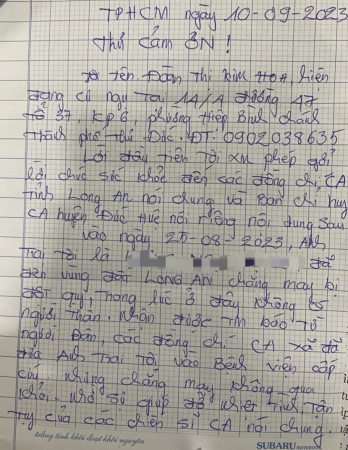 TPHCM ngày 10-09-2023
Thư Cảm ƠN!
Tôi tên Đoàn Thị Kim Hoa, hiện
đang cư ngụ tại 1A/A đường 47
tổ 37, KP6, phường Hiệp Bình Chánh
Thành phố Thủ Đức. ĐT: 0902038635
Lời đầy tiên tôi xin phép gởi
lời chúc sức khỏe đến các đồng chí, CA
tỉnh Long An nói chung và Ban chỉ huy
CA huyện Đức Huệ nói riêng nội dung sau
vào ngày 25-08-2023, Anh
Trai tôi là đã
đến vùng đất LONG AN chẳng may bị
đột quỵ, trong lúc ở đây không có
người thân. Nhận được tin báo từ
người dân, các đồng chí CA xã đã
đưa Anh Trai tôi vào Bệnh viện cấp
cứu nhưng chẳng may không qua
khỏi. Nhờ sự giúp đỡ nhiệt tình, tận
tụy của các chiến sĩ CA nói chung.
trắng tinh khôi đoạt khôi nguyên
SUBARU NOTEBOOK